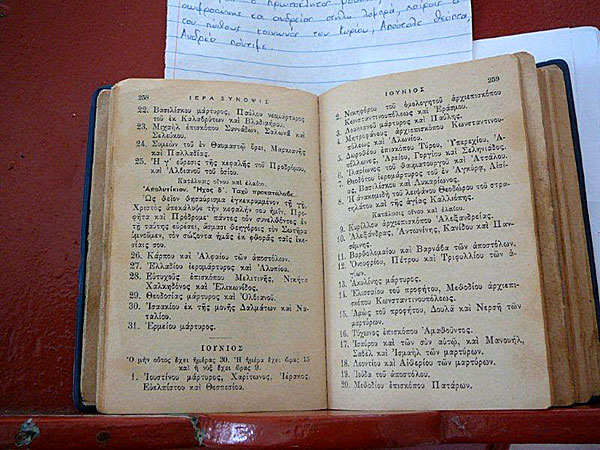 σωφροσύνης κα ανδρείας στήλη λαμπρά,
του πάθους κοινωνός του Κυρίου, Απόστολε
Ανδρέα
258 ΙΕΡΑ ΣΥΝΟΨΙΣ
22. Βασιλίσκου μάρτυρος, Παύλου νεομάρτυρος
τοῦ ἐκ Καλαβρύτων καὶ Βλαδιμήρου.
23. Μιχαὴλ ἐπισκόπου Συννάδων, Σαλωνᾶ καὶ
Σελεύκου.
24. Συμεὼν τοῦ ἐν Θαυμαστῷ ὄρει, Μαρκιανῆς
καὶ Παλλαδίας.
25. Ἡ γ΄ εὕρεσις τῆς κεφαλῆς τοῦ Προδρόμου,
καὶ Ἀλδιανοῦ τοῦ ὁσίου.
Κατάλυσις οἴνου καὶ ἐλαίου.
Ἀπολυτίκιον. Ἦχος δ΄. Ταχὺ προκατάλαβε.
Ὡς θεῖον θησαύρισμα ἐγκεκρυμμένον τῇ γῇ,
Χριστὸς ἀπεκάλυψε τὴν κεφαλήν σου ἡμῖν, Προ-
φῆτα καὶ Πρόδρομε· πάντες οὖν συνελθόντες ἐν
τῇ ταύτης εὑρέσει, ᾄσμασι θεηγόροις τὸν Σωτῆρα
ὑμνοῦμεν, τὸν σώζοντα ἡμᾶς ἐκ φθορᾶς ταῖς ἱκε-
σίαις σου.
26. Κάρπου καὶ Ἀλφαίου τῶν ἀποστόλων.
27. Ἑλλαδίου ἱερομάρτυρος καὶ Ἀλυπίου.
28. Εὐτυχοῦς ἐπισκόπου Μελιτινῆς, Νικήτα
Χαλκηδόνος καὶ Ἑλικωνίδος.
29. Θεοδοσίας μάρτυρος καὶ Ὀλβιανοῦ.
30. Ἰσαακίου ἐκ τῆς μονῆς Δαλμάτων καὶ Να-
ταλίου.
31. Ἑρμείου μάρτυρος.
ΙΟΥΝΙΟΣ
Ὁ μὴν οὗτος ἔχει ἡμέρας 30. Ἡ ἡμέρα ἔχει ὥρας 15
καὶ ἡ νὺξ ἔχει ὥρας 9.
1. Ἰουστίνου μάρτυρος, Χαρίτωνος, Ἱέρακος,
Εὐελπίστου καὶ Θεσπεσίου.
ΙΟΥΝΙΟΣ 259
2. Νικηφόρου τοῦ ὁμολογητοῦ ἀρχιεπισκόπου
Κωνσταντινουπόλεως καὶ Ἐράσμου.
3. Λουκιανοῦ μάρτυρος καὶ Παύλης.
4. Μητροφάνους ἀρχιεπισκόπου Κωνσταντινου-
πόλεως καὶ Ἀλωνίου.
5. Δωροθέου ἐπισκόπου Τύρου, Ὑπερεχίου, Ἀ-
πόλλωνος, Ἀρείου, Γοργίου καὶ Σεληνιάδος.
6. Ἱλαρίωνος τοῦ θαυματουργοῦ καὶ Ἀττάλου.
7. Θεοδότου ἱερομάρτυρος τοῦ ἐν Ἀγκύρᾳ, Αἰσί-
ας, Βασιλίσκου καὶ Λυκαρίωνος.
8. Ἡ ἀνακομιδὴ τοῦ λειψάνου Θεοδώρου τοῦ στρα-
τηλάτου καὶ τῆς ἁγίας Καλλιόπης.
Κατάλυσις οἴνου καὶ ἐλαίου.
9. Κυρίλλου ἀρχιεπισκόπου Ἀλεξανδρείας.
10. Ἀλεξάνδρας, Ἀντωνίνης, Κανίδου καὶ Παν-
σέμνης.
11. Βαρθολομαίου καὶ Βαρνάβα τῶν ἀποστόλων.
12. Ὀνουφρίου, Πέτρου καὶ Τριφυλλίου τῶν ἁ-
γίων.
13. Ἀκυλίνης μάρτυρος.
14. Ἐλισσαίου τοῦ προφήτου, Μεθοδίου ἀρχιεπι-
σκόπου Κωνσταντινουπόλεως.
15. Ἀμὼς τοῦ προφήτου, Δουλᾶ καὶ Νερσῆ τῶν
μαρτύρων.
16. Τύχωνος ἐπισκόπου Ἀμαθοῦντος.
17. Ἰσαύρου καὶ τῶν σὺν αὐτῷ, καὶ Μανουήλ,
Σαβὲλ καὶ Ἰσμαὴλ τῶν μαρτύρων.
18. Λεοντίου καὶ Αἰθερίου τῶν μαρτύρων.
19. Ἰούδα τοῦ ἀποστόλου.
20. Μεθοδίου ἐπισκόπου Πατάρων,